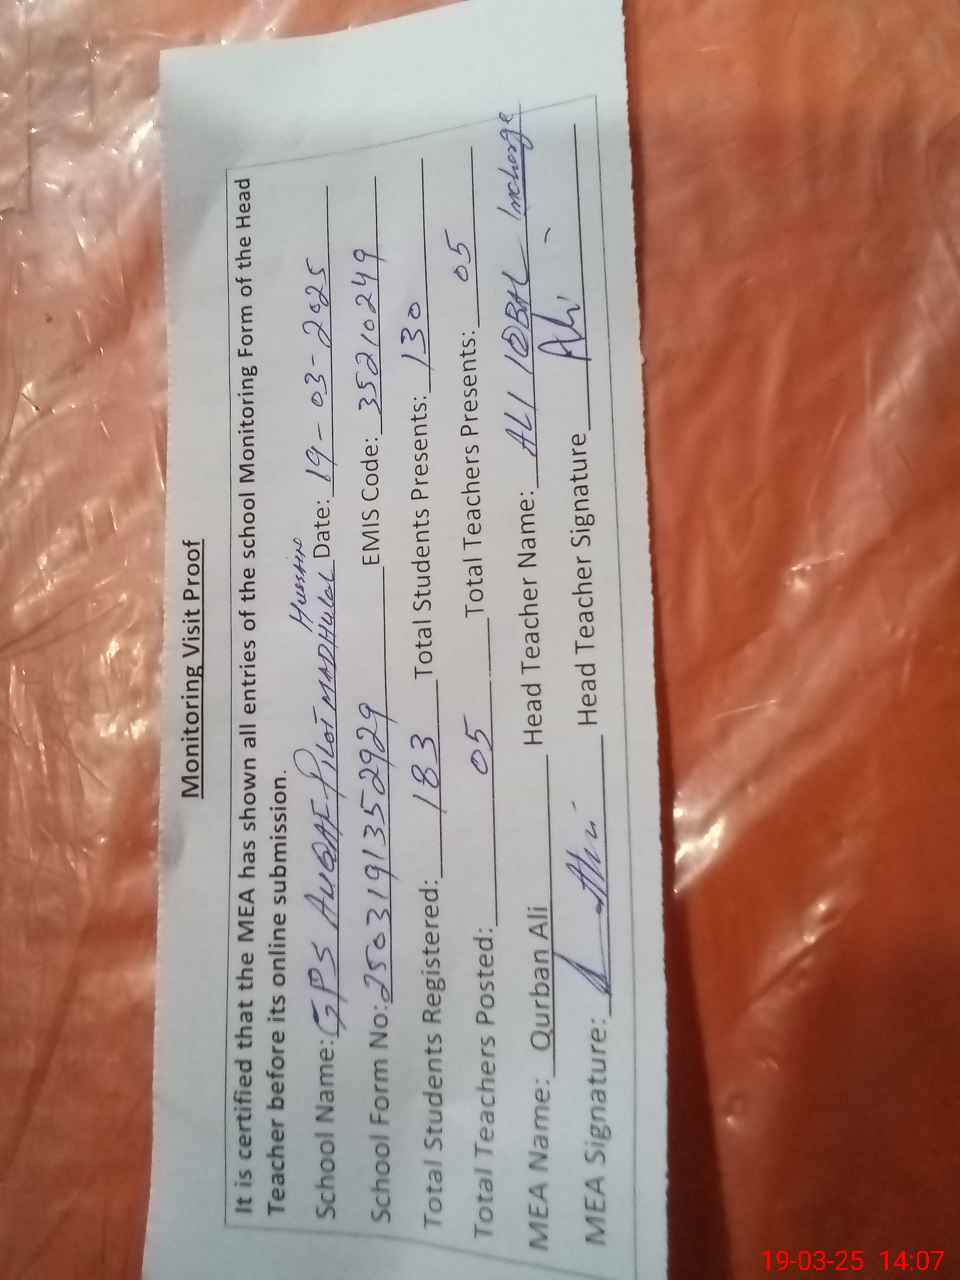 Monitoring Visit Proof
It is certified that the MEA has shown all entries of the school Monitoring Form of the Head
Teacher before its online submission.
School Name: GPS AUQAF Pilot MADHULAL Hussain Date: 19-03-2025
School Form No: 2503191352929 EMIS Code: 35210249
Total Students Registered: 183 Total Students Presents: 130
Total Teachers Posted: 05 Total Teachers Presents: 05
MEA Name: Qurban Ali Head Teacher Name: ALI IQBAL Incharge
MEA Signature: Head Teacher Signature Ali
19-03-25 14:07